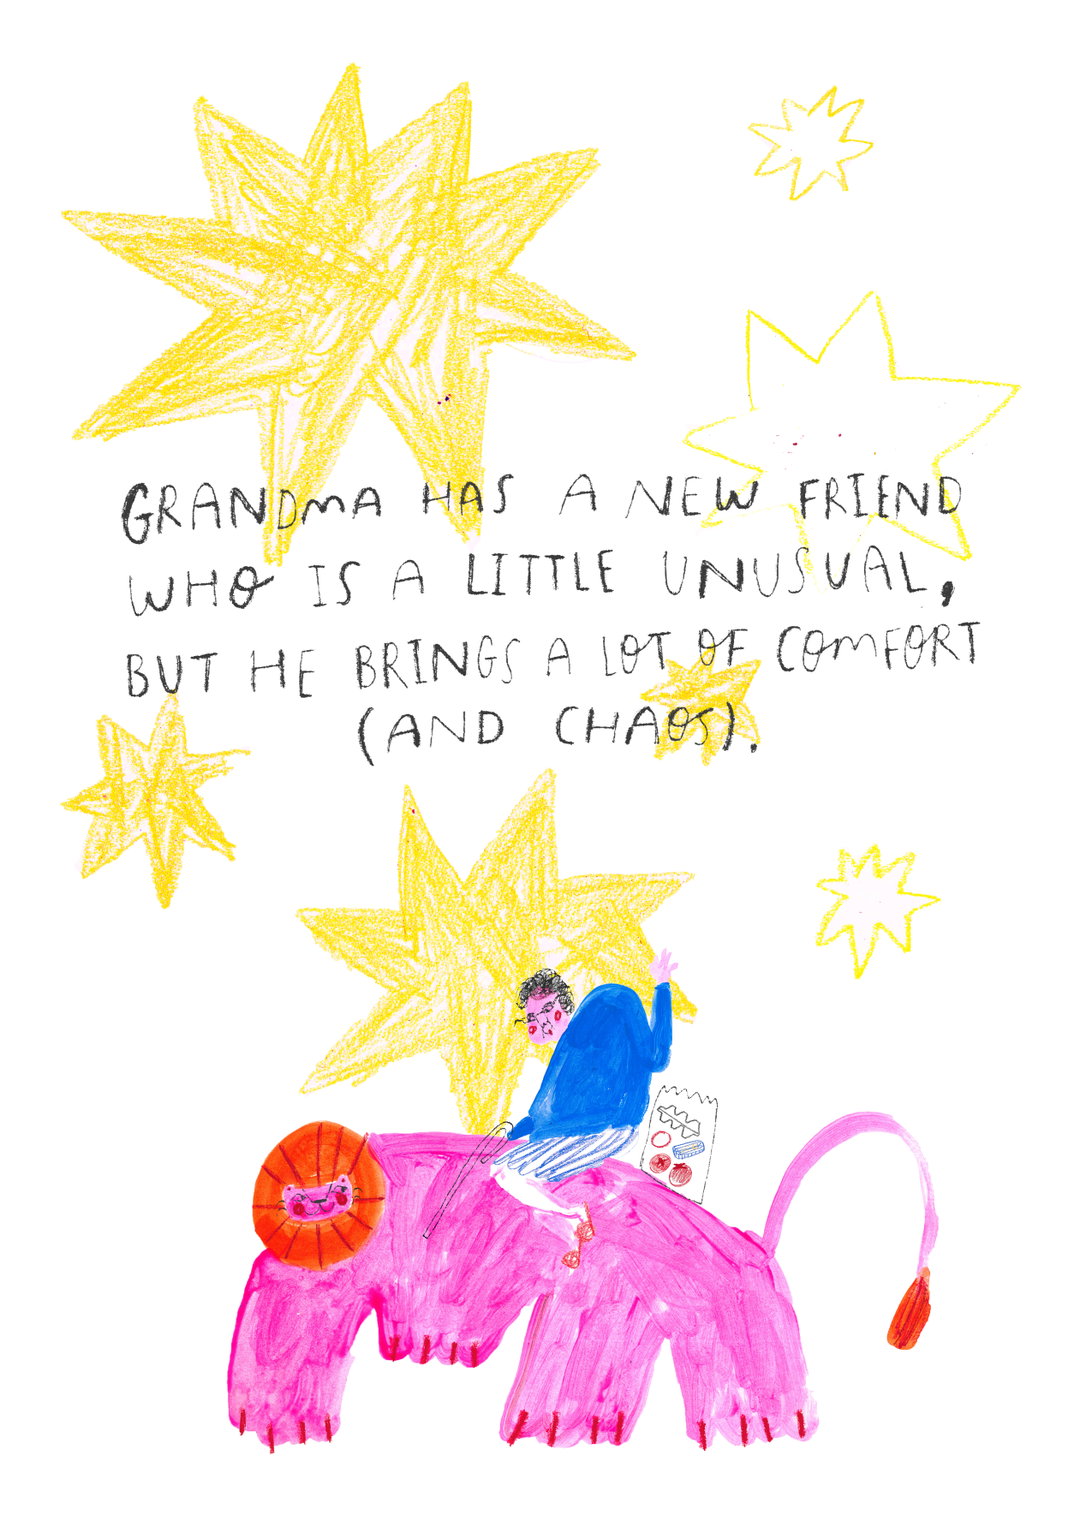 GRANDMA HAS A NEW FRIEND
WHO IS A LITTLE UNUSUAL,
BUT HE BRINGS A LOT OF COMFORT
(AND CHAOS).